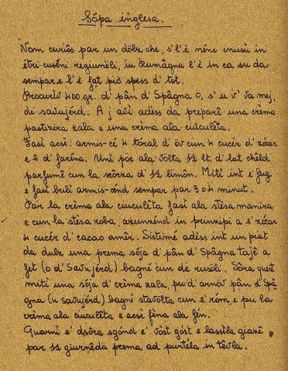 Sópa inglesa.
Nom curiòs par un dólz che, s'l'è nénc cnusù in
ètri cusèni regiunéli, in Rumâgna l'è in ca su da
sempar e l'è fat piò spess d' tot.
Procurév 400 gr. d' pân d' Spâgna o, s'u v' va mej,
di savujérd. A j avì adess da preparê una crèma
pastizira zala e una crèma ala culculêta.
Fasì acsè: armis-cì 4 tóral d'óv cun 4 cucér d' zócar
e 2 d' faréna. Unì pôc ala vólta 1/2 lt. d' lat chêld
parfumê cun la scórza d' 1/2 limôn. Mitì int e' fug
e fasì bulì armis-ciend sempar par 3 o 4 minut.
Par la crèma ala cuculêta fasì ala stesa manira
e cun la stesa roba, azuntànd in prinzipi a l' zócar
4 cucér d' cacao amêr. Sistimê adëss int un piat
da dulz una prema sója d' pân d' Spâgna tajê a
fet (o d' Savujérd) bagnì cun de rusóli. Sóra gust
mitì una sója d' crema zala, pu d'arnôv pân d' Spâ
gna (o savujérd) bagnì stavólta cun e' róm, e pu la
crèma ala cuculêta e acsè féna ala fén.
Guarnì e' dsóra sgónd e' vóst góst e lassìla giazê
par 1/2 giurnêda prema ad purtêla in tëvla.